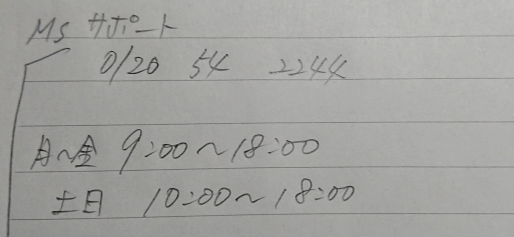 MS サポート
0120 54 2244
月〜金 9:00〜18:00
土日 10:00〜18:00